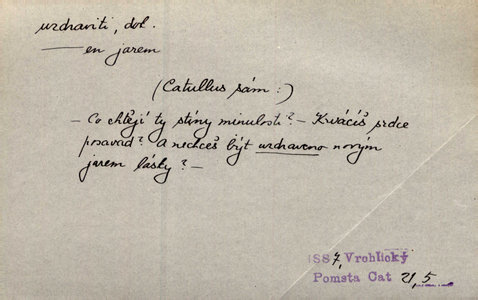 uzdraviti, dok.
— en jarem
(Catullus sám:)
– Co chtějí ty stíny minulosti? – Krvácíš srdce
posavad? A nechceš být uzdraveno novým
jarem lásky? –
1887, Vrchlický
Pomsta Cat 21, 5